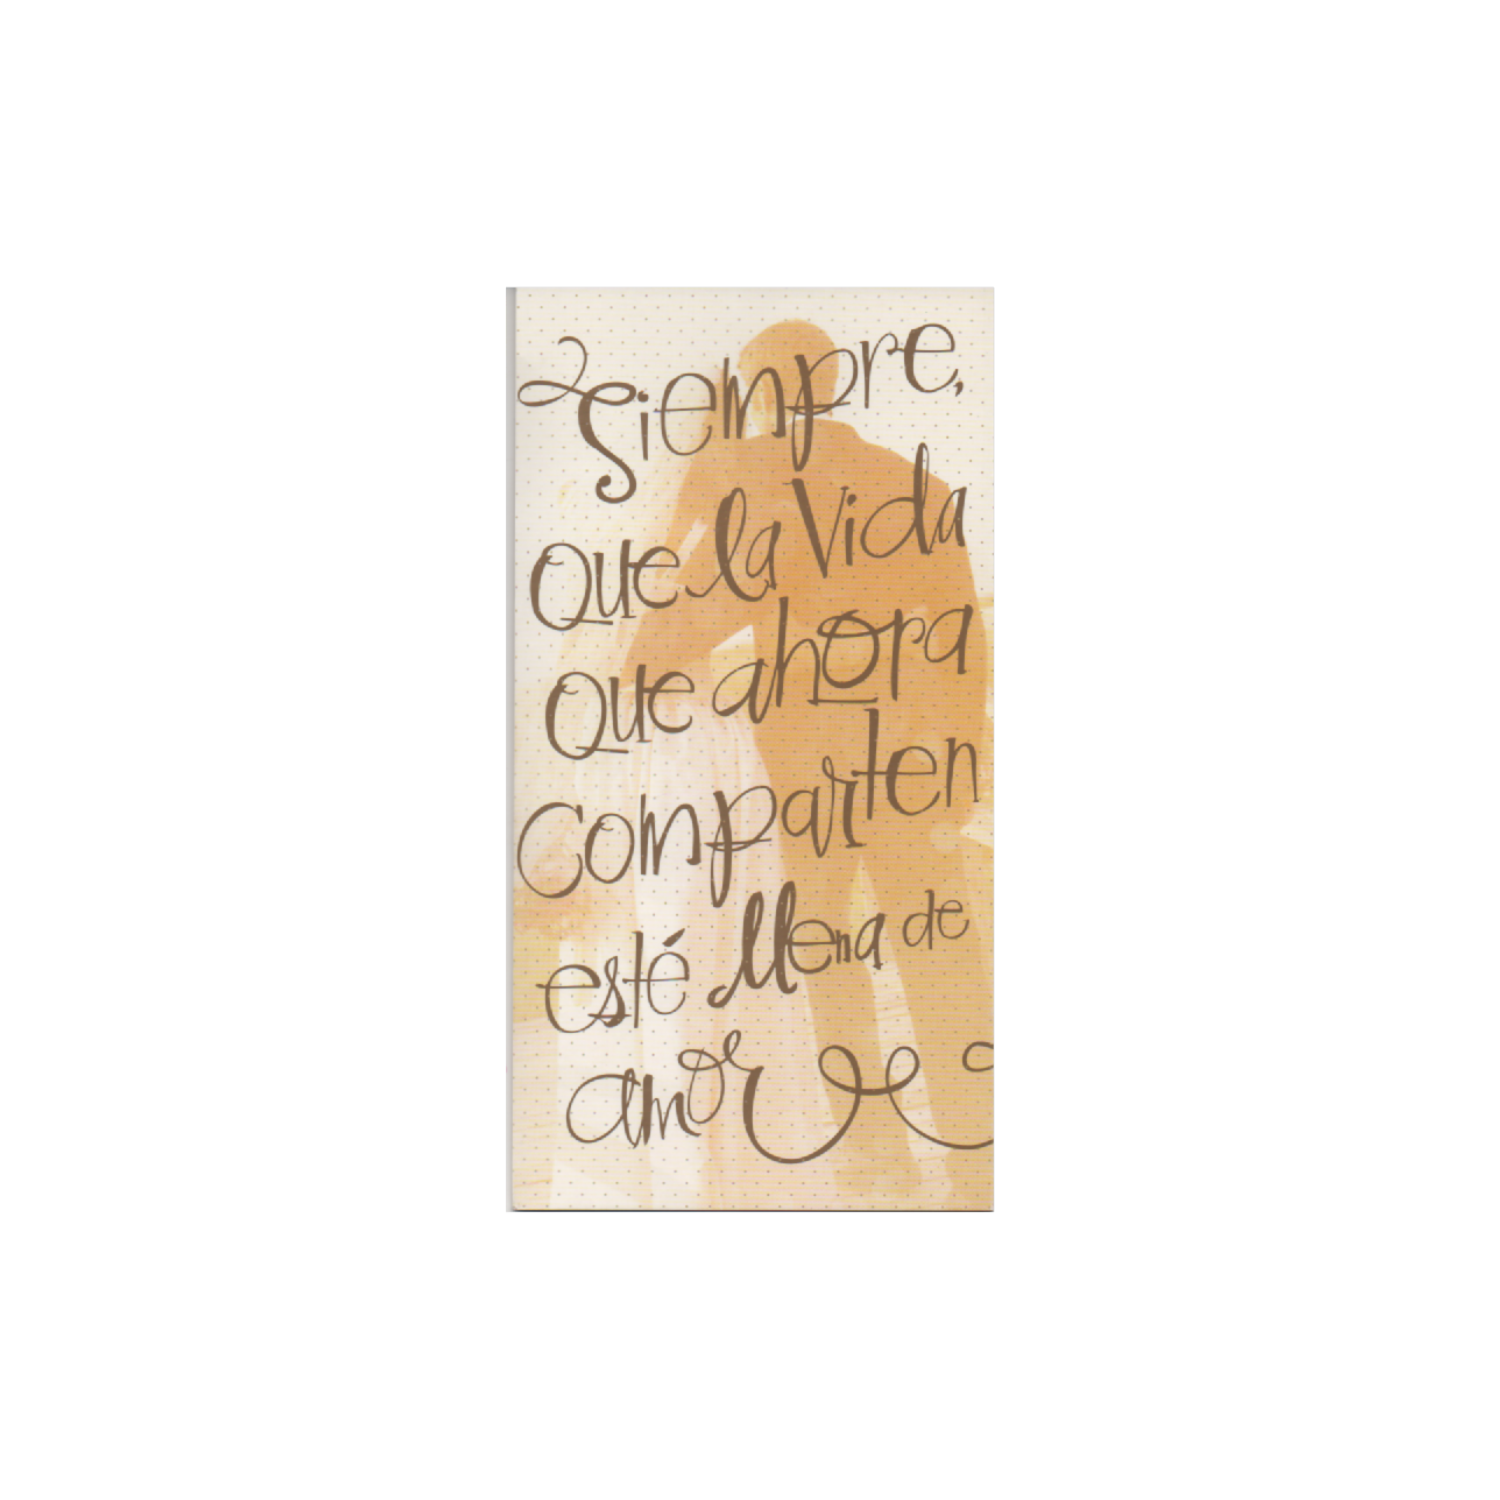 Siempre,
Que la Vida
Que ahora
Comparten
esté llena de
amor